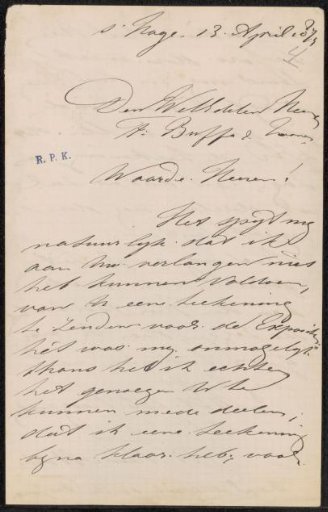 s' Hage. 13. April 187
4
Den WelEdelen Heer
Fs. Buffa & Zoonen
R. P. K.
Waarde Heeren!
Het spijt mij
natuurlijk dat ik
aan Uw verlangen niet
heb kunnen voldoen,
van U eene teekening
te zenden voor de Expositie
het was mij onmogelijk.
Thans heb ik echter
het genoegen U te
kunnen mededeelen,
dat ik eene teekening
bijna klaar heb, voor